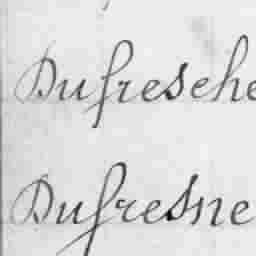 Dufresche
Dufresne